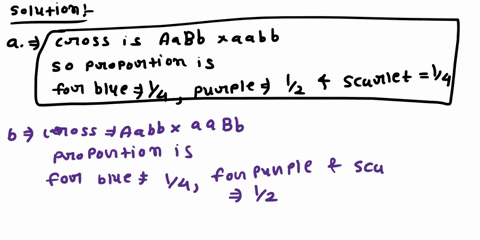 Solution:-
a.⇒ cross is AaBb x aabb
so proportion is
for blue ⇒ 1/4, purple ⇒ 1/2 & scarlet = 1/4
b ⇒ cross ⇒ Aabb x aaBb
proportion is
for blue ⇒ 1/4, for purple & scu
⇒ 1/2